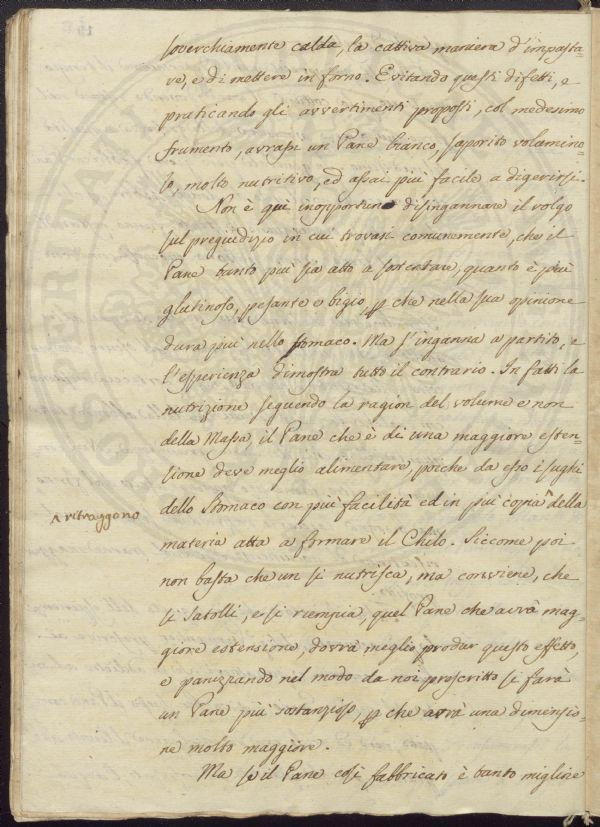 soverchiamente calda, la cattiva maniera d'imposta=
re, e di mettere in forno. Evitando questi difetti, e
praticando gli avvertimenti proposti, col medesimo
frumento, avrassi un Pane bianco, saporito volumino=
so, molto nutritivo, ed assai più facile a digerirsi.
Non è quì inopportuno disingannare il volgo
sul pregiudizio in cui trovasi comunemente, che il
Pane tanto più sia atto a sostentare, quanto è più
glutinoso, pesante e bigio, p che nella sua opinione
dura più nello stomaco. Ma s'inganna a partito, e
l'esperienza dimostra tutto il contrario. In fatti la
nutrizione seguendo la ragion del volume e non
della Massa, il Pane che è di una maggiore esten=
sione deve meglio alimentare, poiche da esso i sughi
dello Stomaco con più facilità ed in più copia ^ della
^ ritraggono
materia atta a formare il Chilo. Siccome poi
non basta che un si nutrisca, ma conviene, che
si satolli, e si riempia, quel Pane che avrà mag=
giore estensione, dovrà meglio produr questo effetto,
e panizzando nel modo da noi proscritto si farà
un Pane più sostanzioso, p che avrà una dimensio=
ne molto maggiore.
Ma se il Pane così fabbricato è tanto migliore